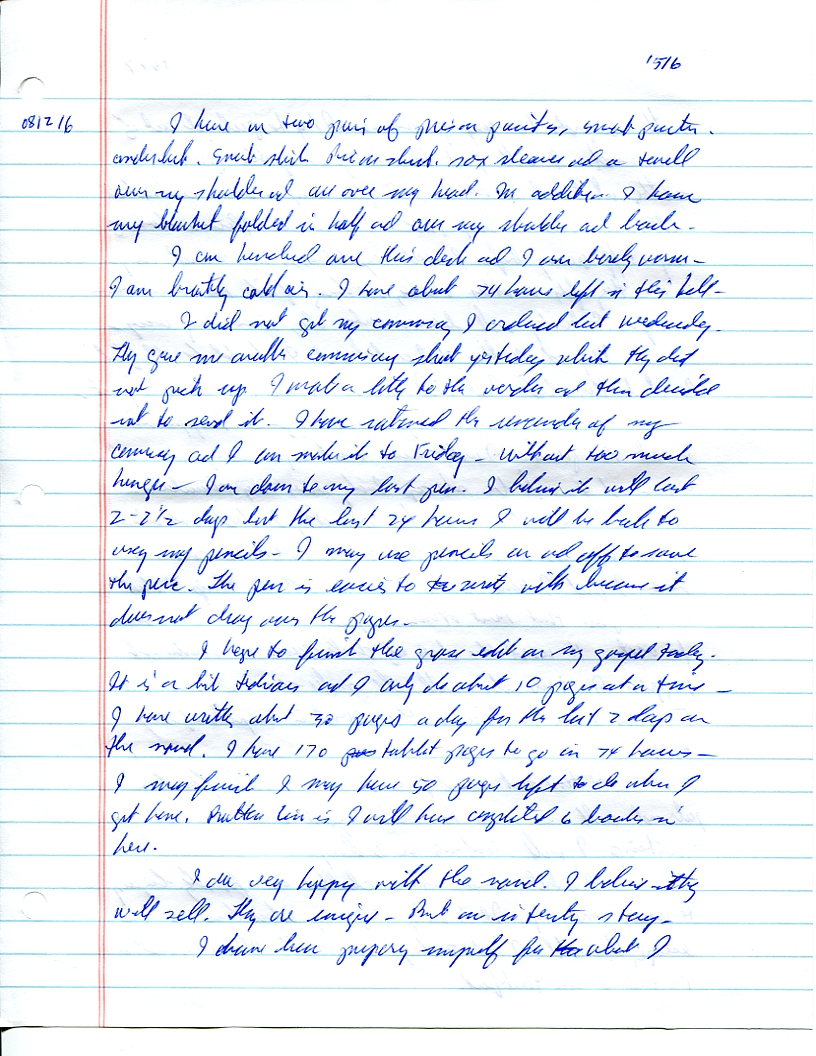 1516
0812 16
I have on two pairs of prison panties, sweat pants.
undershirt. Sweat shirt Prison shirt. sox sleeves ad a towell
over my shoulders ad over my head. In addition I have
my blanket folded in half ad over my shoulder ad back.
I am hunched over this desk ad I am barely warm –
I am breathing cold air. I have about 74 hours left in this hell –
I did not get my commissary I ordered last wednesday.
They gave me another commissary sheet yesterday which they did
not pick up. I wrote a letter to the warden ad then decided
not to send it. I have rationed the remainder of my
commissary ad I can make it to Friday – without too much
hunger – I am down to my last pen. I believe it will last
2-2 1/2 days but the last 24 hours I will be back to
using my pencils – I may use pencils on ad off to save
the pen. The pen is easier to write with because it
does not drag over the pages –
I hope to finish the gross edit on my gospel today.
It is a bit tedious ad I only do about 10 pages at a time –
I have written about 30 pages a day for the last 2 days on
the novel. I have 170 tablet pages to go in 74 hours –
I may finish I may have 50 pages left to do when I
get home. Bottom line is I will have completed 6 books in
here.
I am very happy with the novel. I believe they
will sell. They are unique – But an story –
I have been preparing myself for what I